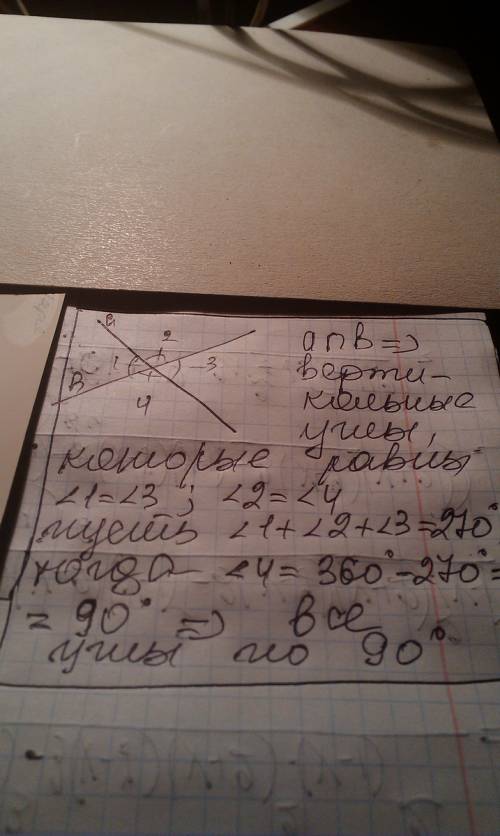 a 2
1 3
B
4
a∩b =>
верти-
кальные
углы,
которые равны
∠1=∠3 ; ∠2=∠4
пусть ∠1+∠2+∠3=270°
тогда ∠4= 360°-270°=
= 90° => все
углы по 90°